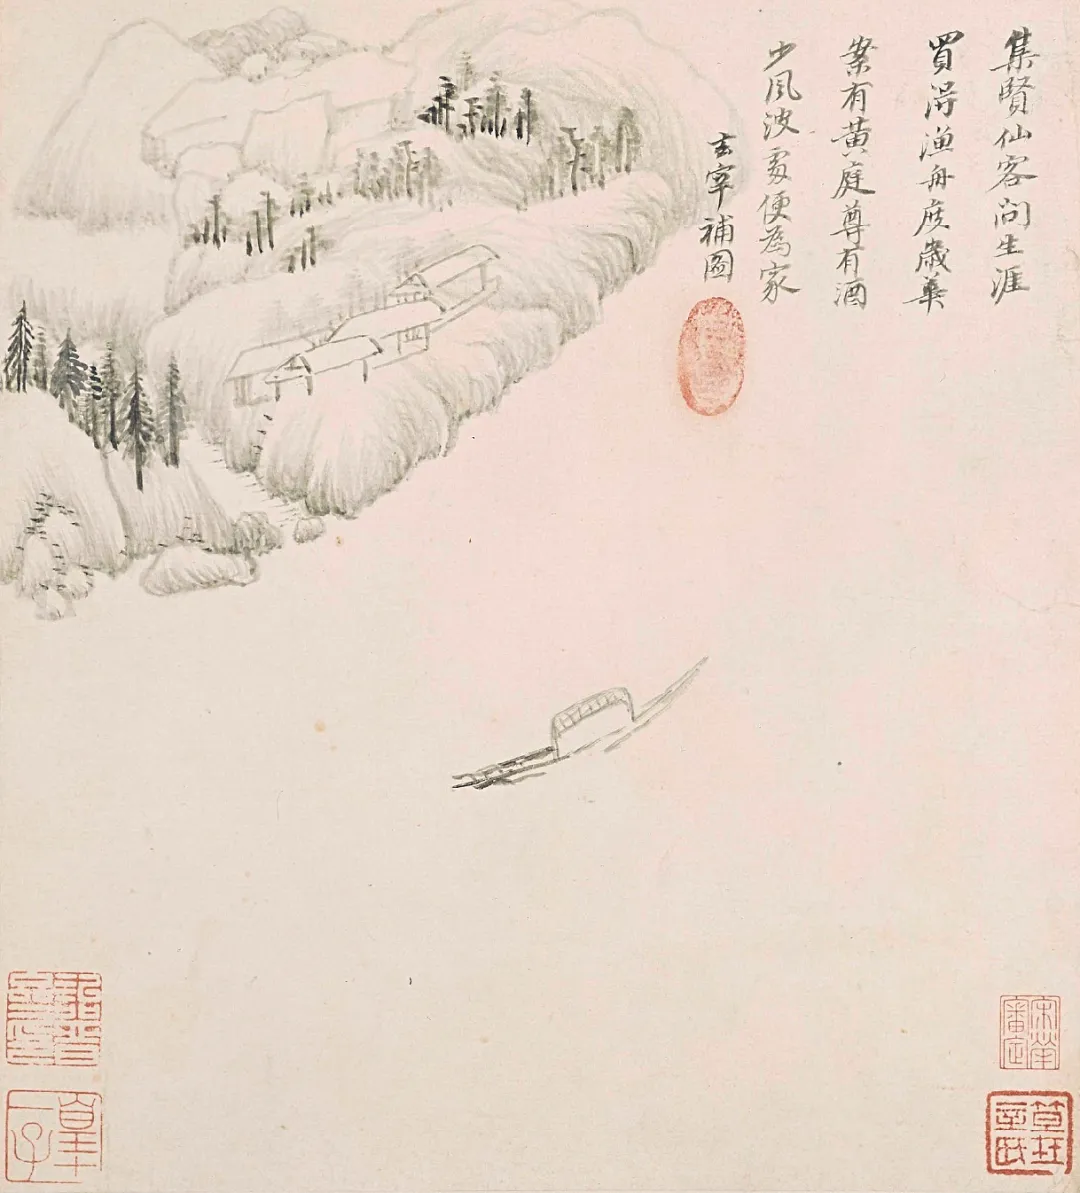 集賢仙客問生涯
買得漁舟度歲華
案有黃庭尊有酒
少風波處便為家
玄宰補圖
宋犖審定
皇十一子